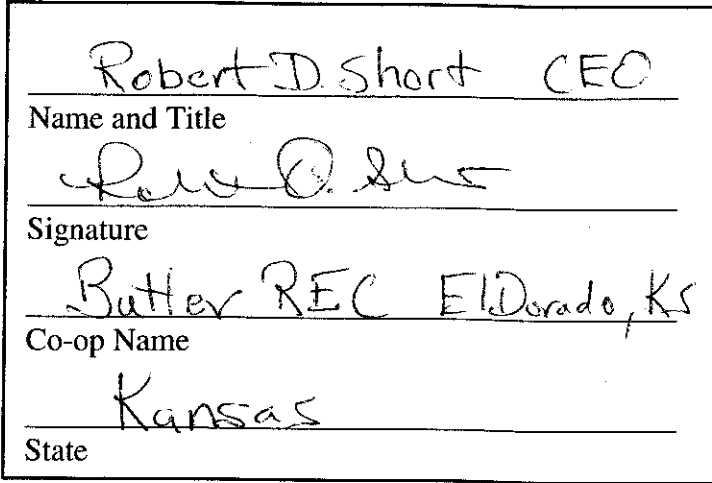 Robert D. Short CEO
Name and Title
Robert D. Short
Signature
Butler REC ElDorado, Ks
Co-op Name
Kansas
State